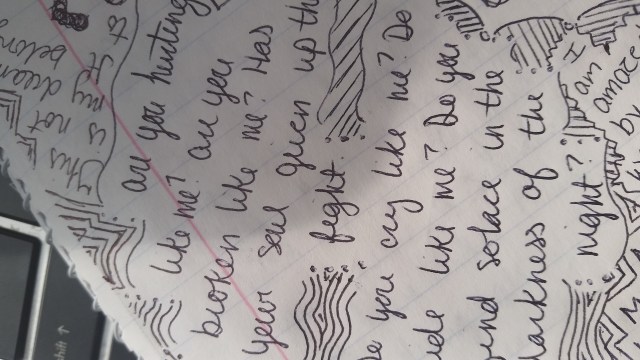 are you hunting
like me? are you
broken like me? Has
your soul given up the
fight.
Do you cry like me? Do
hide like me? Do you
find solace in the
darkness of the
night?
This is
is not
my dream
belong
I
am
amaz
by
shift ↑